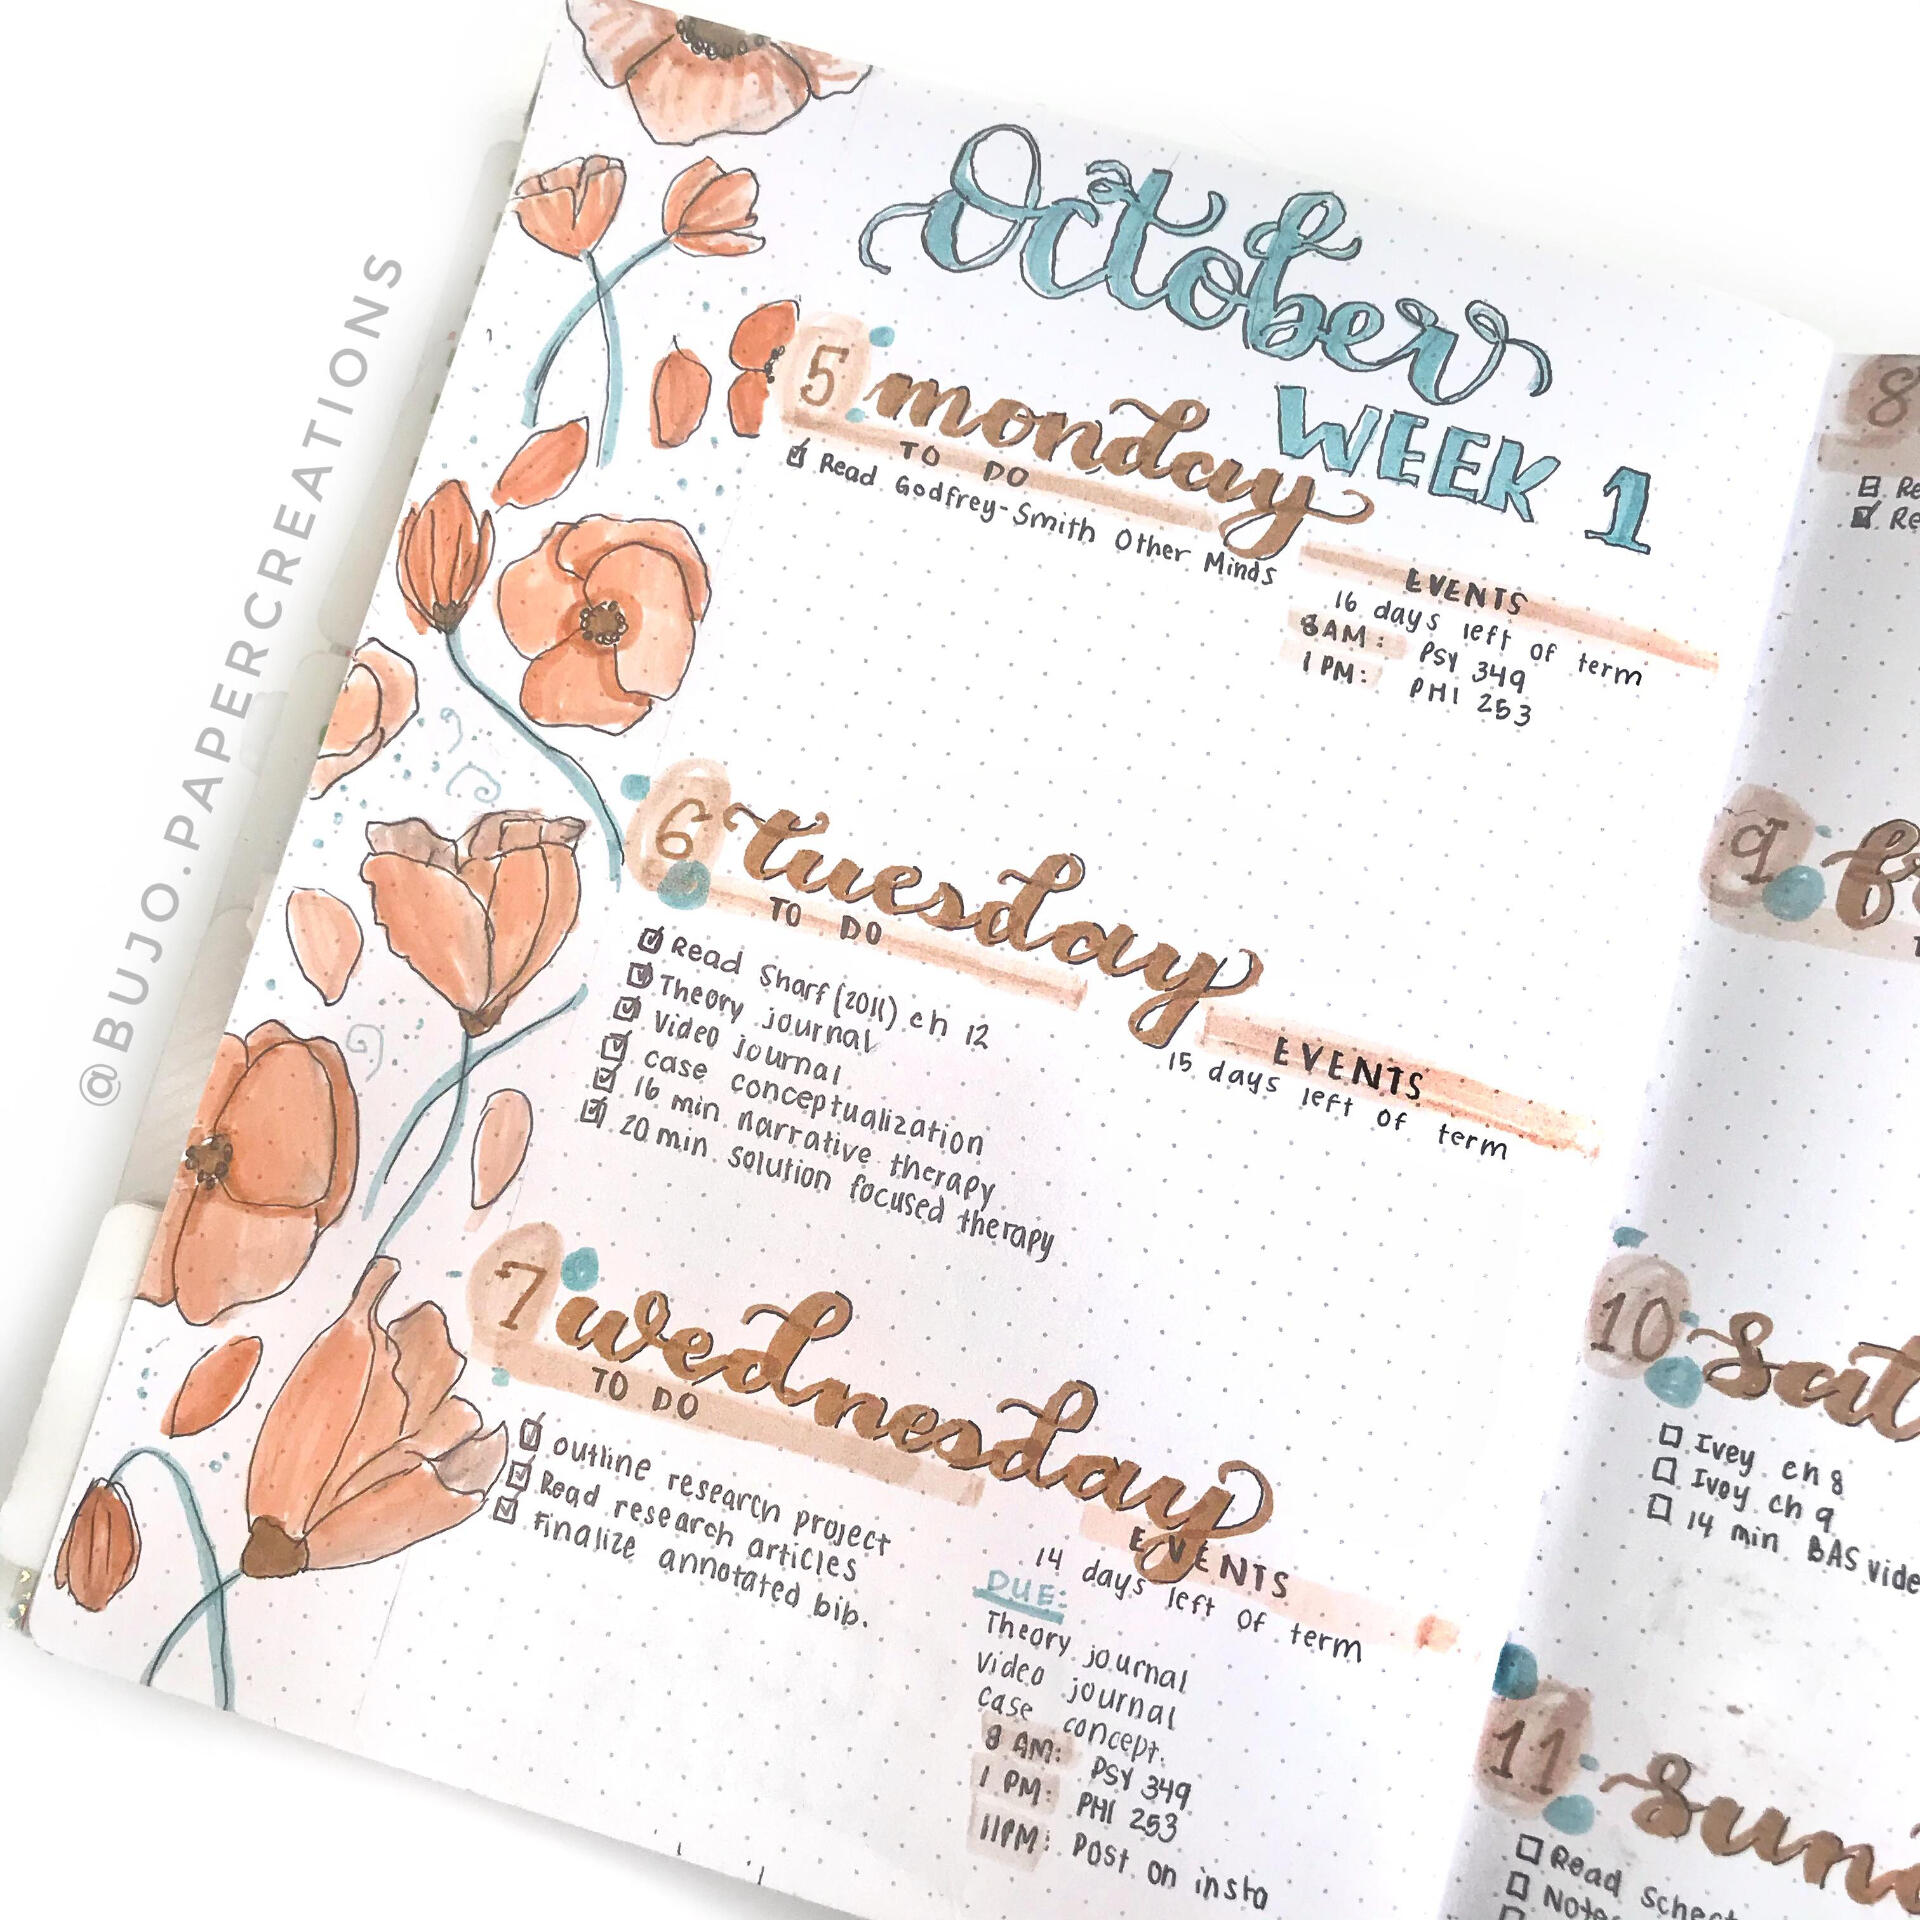 @BUJO.PAPERCREATIONS
October
WEEK 1
5 monday
TO DO
Read Godfrey-Smith Other Minds
EVENTS
16 days left of term
8AM: PSY 349
1 PM: PHI 253
6 Tuesday
TO DO
Read Sharf (2011) ch 12
Theory journal
Video journal
case conceptualization
16 min narrative therapy
20 min solution focused therapy
EVENTS
15 days left of term
7 wednesday
TO DO
outline research project
Read research articles
Finalize annotated bib.
EVENTS
14 days left of term
DUE:
Theory journal
Video journal
case concept.
8 AM: PSY 349
1 PM: PHI 253
11PM: Post on insta
8
9
10
Ivey ch 8
Ivey ch 9
14 min BAS
11
Read